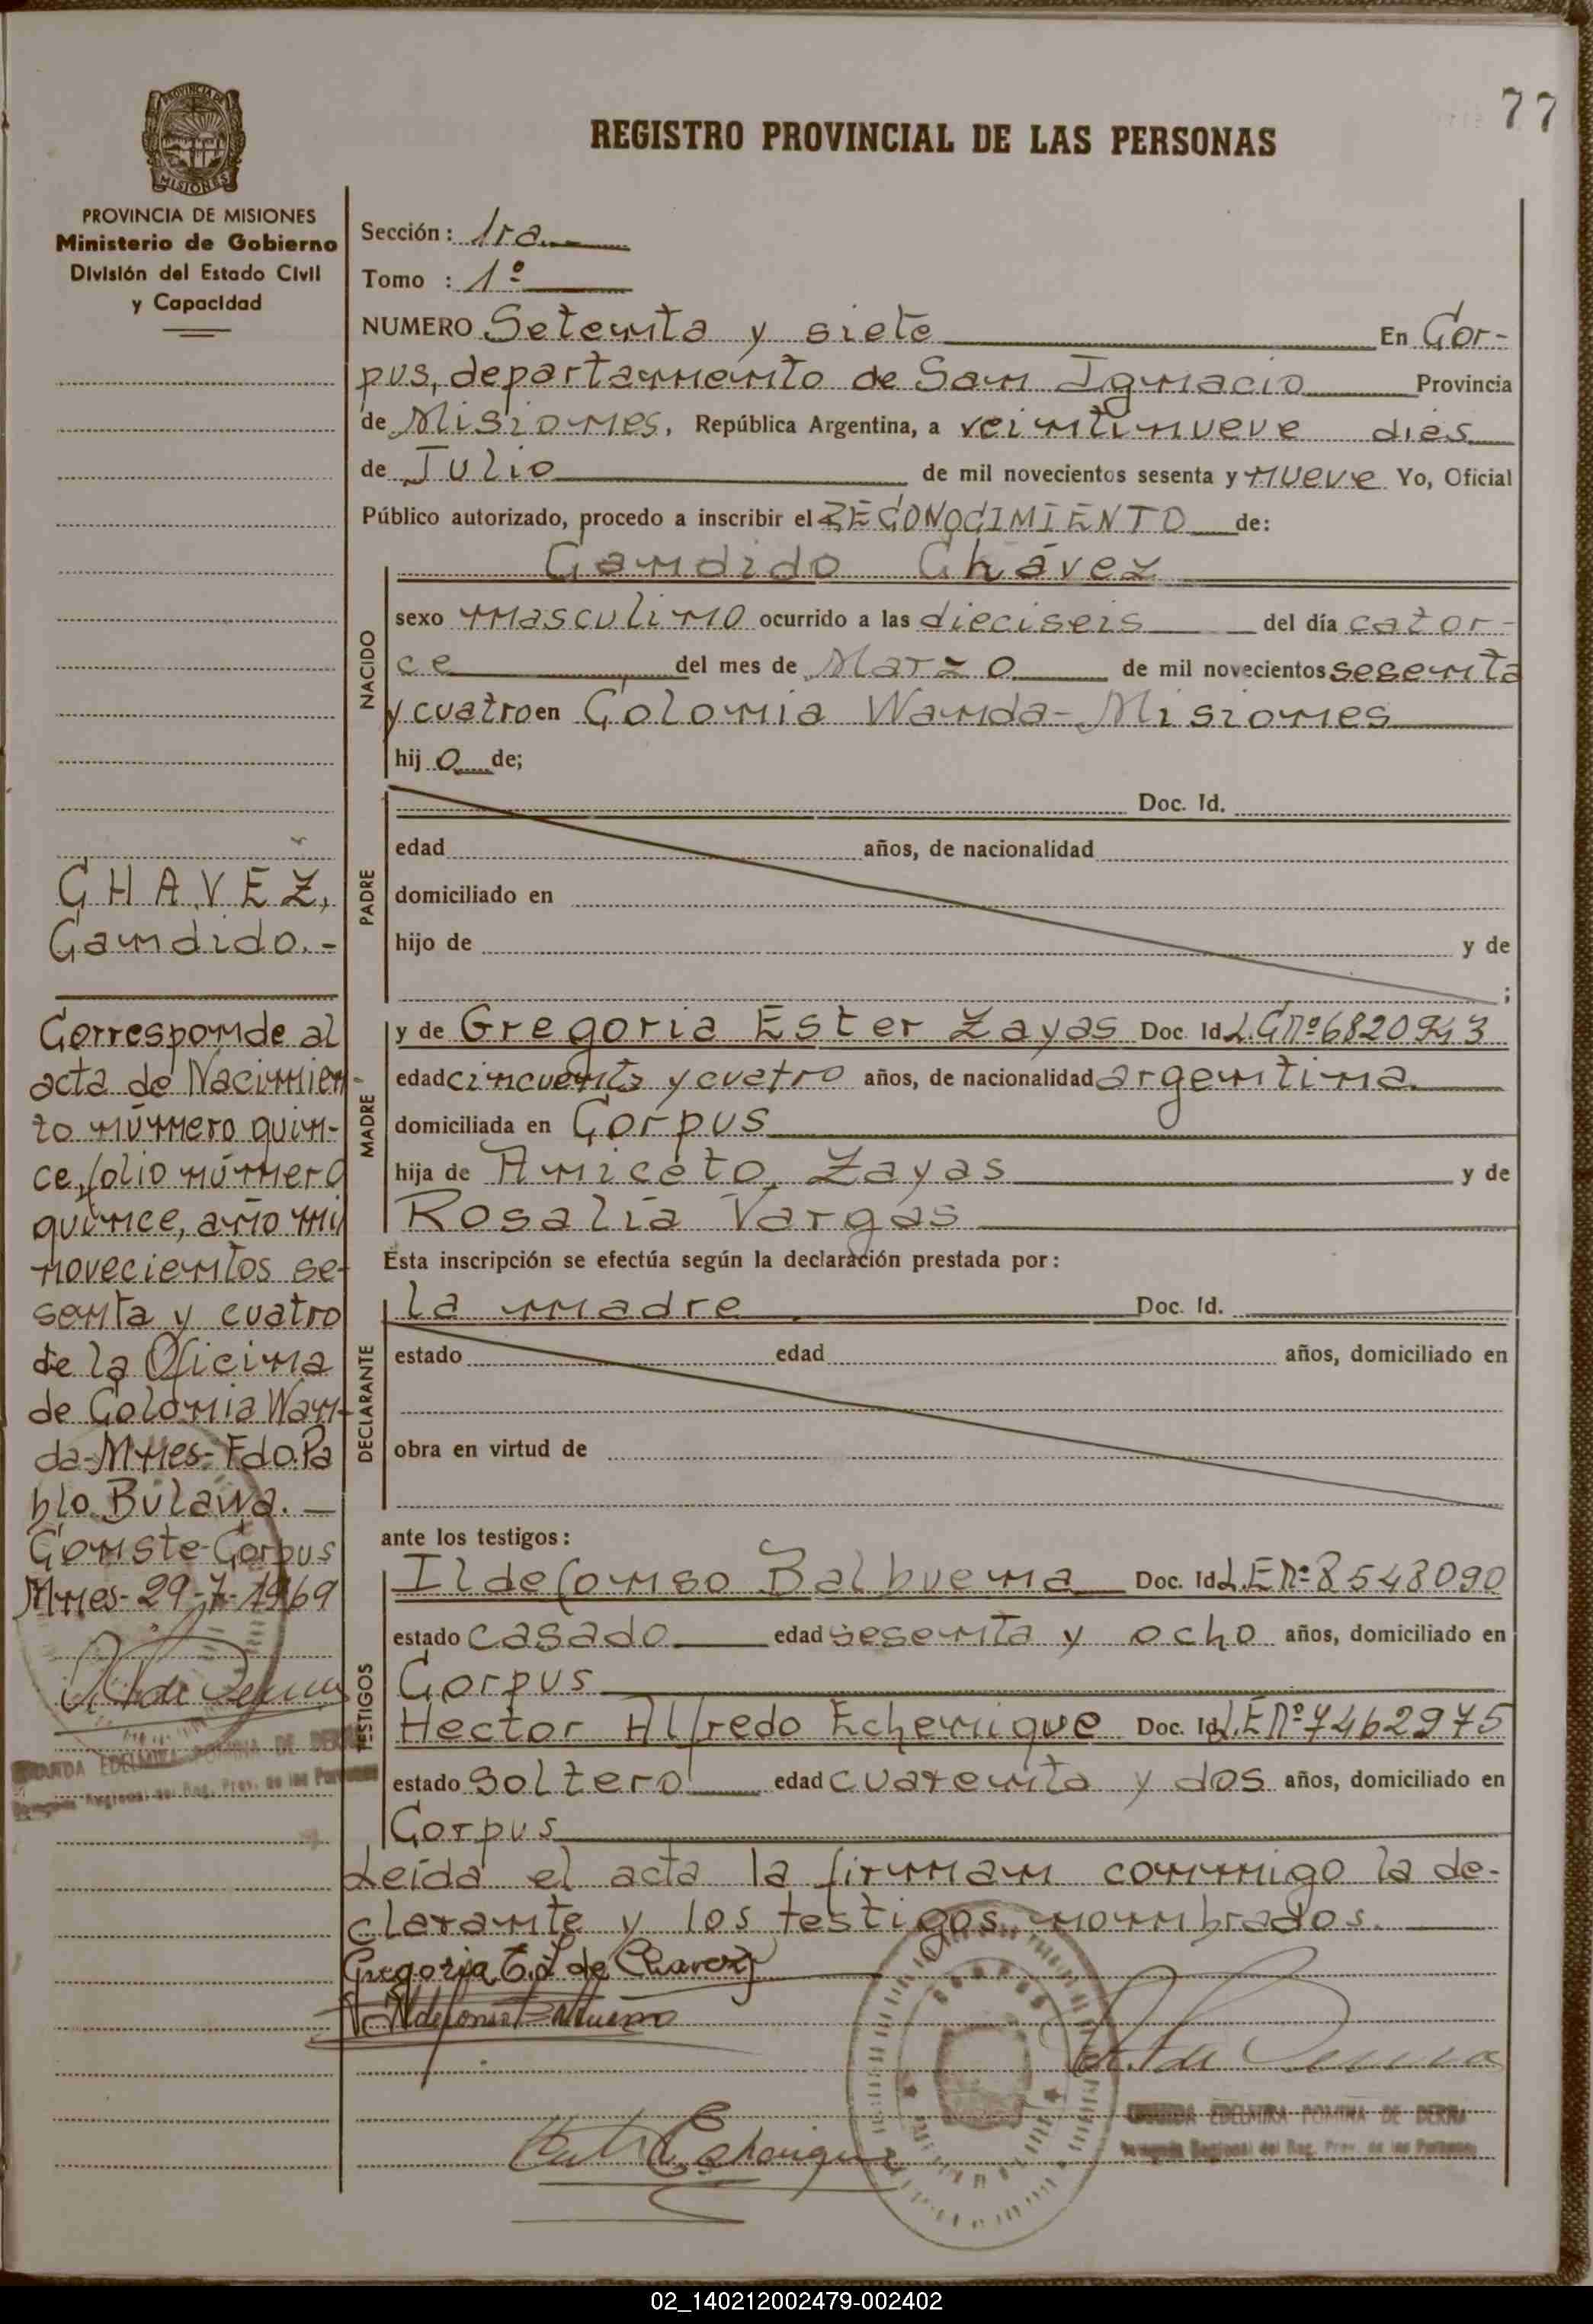 77
PROVINCIA DE
MISIONES
REGISTRO PROVINCIAL DE LAS PERSONAS
PROVINCIA DE MISIONES
Ministerio de Gobierno
División del Estado Civil
y Capacidad
Sección: 1ra.
Tomo : 1º
NUMERO Setenta y siete En Cor-
pus, departamento de San Ignacio Provincia
de Misiones, República Argentina, a veintinueve dies
de Julio de mil novecientos sesenta y nueve Yo, Oficial
Público autorizado, procedo a inscribir el RECONOCIMIENTO de:
Candido Chávez
NACIDO
sexo masculino ocurrido a las dieciseis del día cator-
ce del mes de Marzo de mil novecientos sesenta
y cuatro en Colonia Wanda-Misiones
hij o de;
PADRE
Doc. Id.
edad años, de nacionalidad
domiciliado en
hijo de y de
;
MADRE
y de Gregoria Ester Zayas Doc. Id L.C nº 6820943
edad cincuenta y cuatro años, de nacionalidad argentina.
domiciliada en Corpus
hija de Aniceto Zayas y de
Rosalía Vargas
Esta inscripción se efectúa según la declaración prestada por:
DECLARANTE
la madre Doc. Id.
estado edad años, domiciliado en
obra en virtud de
ante los testigos:
TESTIGOS
Ildefonso Balbuena Doc. Id L.E nº 8548090
estado casado edad sesenta y ocho años, domiciliado en
Corpus
Hector Alfredo Echenique Doc. Id L.E nº 7462975
estado soltero edad cuarenta y dos años, domiciliado en
Corpus
Leída el acta la firman conmigo la de-
clarante y los testigos nombrados.
Gregoria E. Z de Chavez
Ildefonso Balbuena
EDELMIRA POMINA DE
Regional del Reg. Prov. de las Personas
CHAVEZ,
Candido.-
Corresponde al
acta de Nacimien-
to número quin-
ce, folio número
quince, año mil
novecientos se-
senta y cuatro
de la Oficina
de Colonia Wan-
da-Mnes-Fdo.Pa
blo Bulawa.
Conste-Corpus
Mnes-29-7-1969
EDELMIRA POMINA DE
Regional del Reg. Prov. de las Personas
02_140212002479-002402